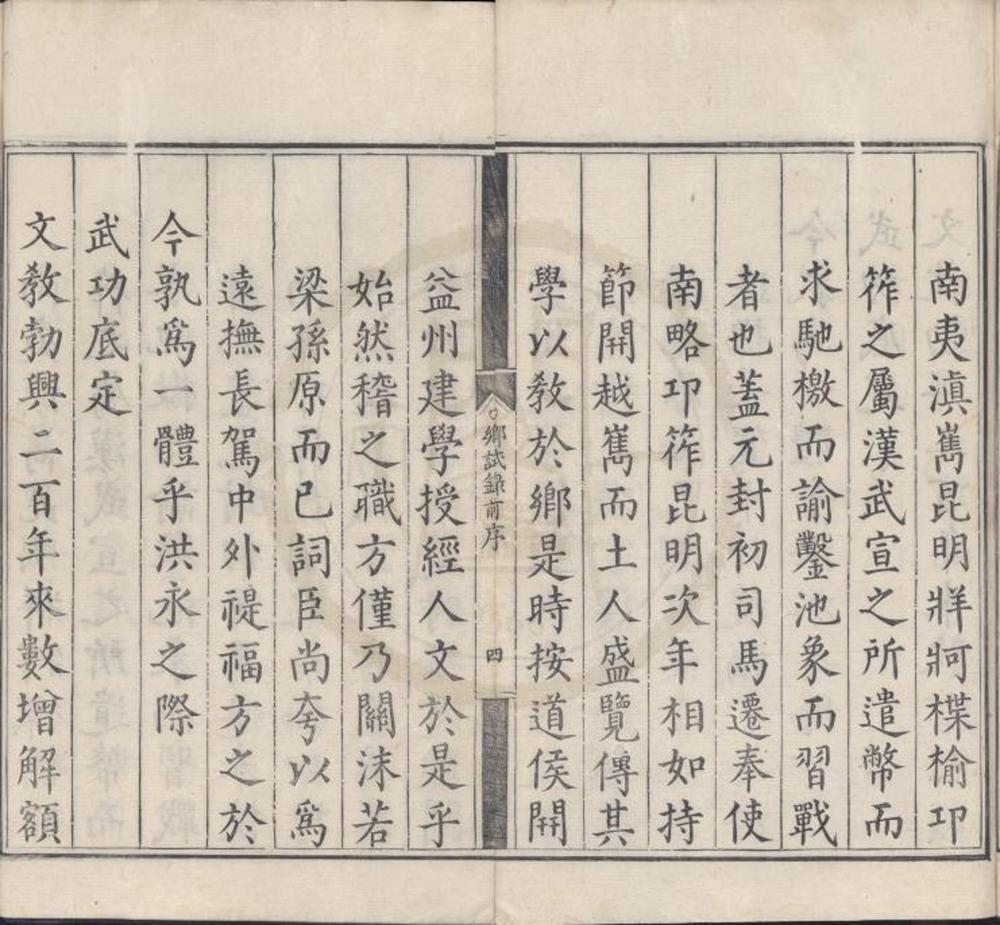 南夷滇嶲昆明牂牁楪榆卭
筰之屬漢武宣之所遣幣而
求馳檄而諭鑿池象而習戰
者也蓋元封初司馬遷奉使
南略卭筰昆明次年相如持
節開越嶲而土人盛覽傳其
學以教於鄉是時按道侯開
鄉試錄前序
四
益州建學授經人文於是乎
始然稽之職方僅乃關沫若
梁孫原而已詞臣尚夸以爲
遠撫長駕中外禔福方之於
今孰爲一體乎洪永之際
武功底定
文教勃興二百年來數增解額